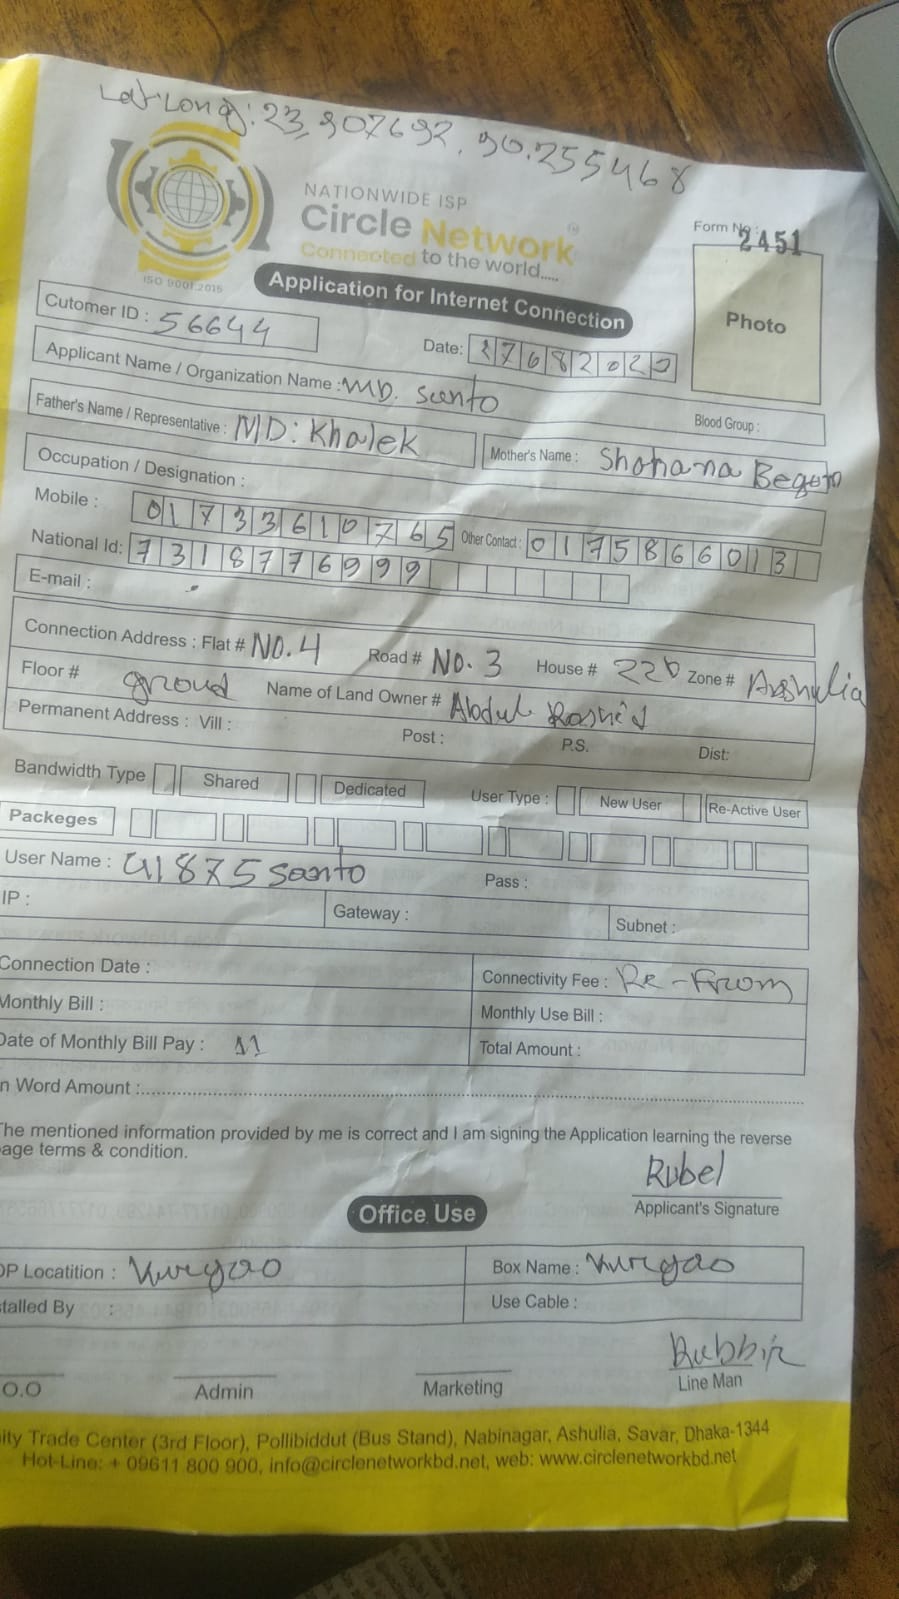 Lat Long: 23.907692, 90.255468
NATIONWIDE ISP
Circle Network
Connected to the world.....
ISO 9001:2015
Form No : 2451
Application for Internet Connection
Photo
Cutomer ID : 56644
Date:
Applicant Name / Organization Name : MD. Santo
Blood Group :
Father's Name / Representative : MD: Khalek
Mother's Name : Shohana Begom
Occupation / Designation :
Mobile : 01733610765 Other Contact : 01758666013
National Id: 7318776999
E-mail :
Connection Address : Flat # NO.4 Road # NO. 3 House # Zone # Ashulia
Floor # groud Name of Land Owner # Abdul Rashid
Permanent Address : Vill : Post : P.S. Dist:
Bandwidth Type Shared Dedicated User Type : New User Re-Active User
Packeges
User Name : 41875santo Pass :
IP : Gateway : Subnet :
Connection Date : Connectivity Fee : Re-From
Monthly Bill : Monthly Use Bill :
Date of Monthly Bill Pay : 11 Total Amount :
n Word Amount :
The mentioned information provided by me is correct and I am signing the Application learning the reverse
page terms & condition.
Rubel
Applicant's Signature
Office Use
OP Locatition : Box Name :
stalled By : Use Cable :
O.O Admin Marketing Line Man
ity Trade Center (3rd Floor), Pollibiddut (Bus Stand), Nabinagar, Ashulia, Savar, Dhaka-1344
Hot-Line: + 09611 800 900, info@circlenetworkbd.net, web: www.circlenetworkbd.net